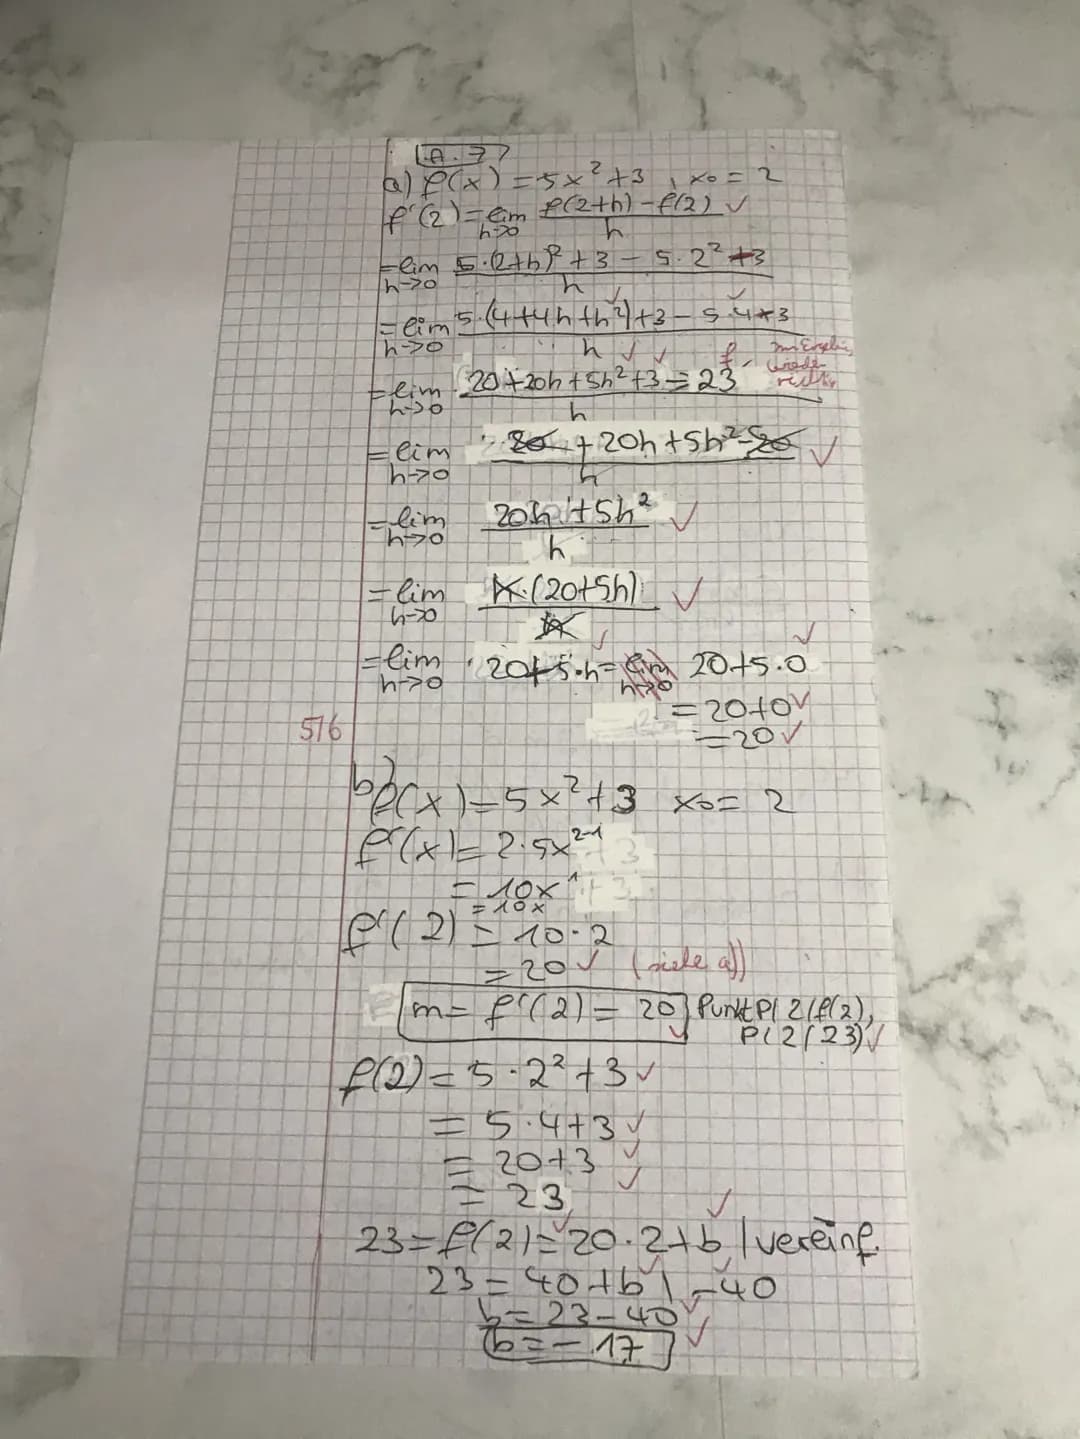 A.7
a) f(x) = 5x² + 3 , x₀ = 2
f'(2) = lim h->0 f(2+h) - f(2) / h ✓
= lim h->0 5·(2+h)² + 3 - 5·2² + 3 / h
= lim h->0 5·(4+4h+h²) + 3 - 5·4 + 3 / h
f
= lim h->0 20 + 20h + 5h² + 3 = 23 / h
= lim h->0 20 + 20h + 5h² - 20 / h ✓
= lim h->0 20h + 5h² / h ✓
= lim h->0 h·(20+5h) / h ✓
= lim h->0 20+5·h = lim h->0 20+5·0
= 20+0 ✓
5/6
= 20 ✓
b)
f(x) = 5x² + 3 x₀ = 2
f'(x) = 2·5x²⁻¹
= 10x¹
= 10x
f'(2) = 10·2
= 20 ✓ (siehe a))
m = f'(2) = 20 Punkt P(2/f(2),
P(2/23) ✓
f(2) = 5·2² + 3 ✓
= 5·4+3 ✓
= 20+3 ✓
= 23 ✓
23 = f(2) = 20·2+b | vereinf.
23 = 40+b | -40
b = 23-40 ✓
b = -17 ✓